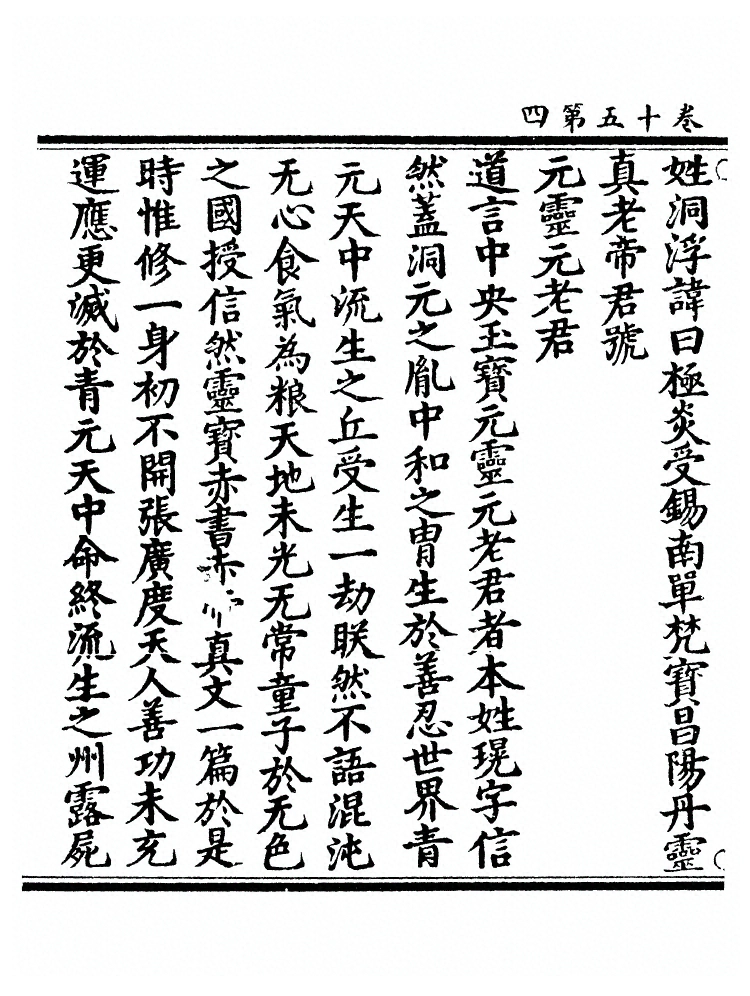 卷十五第四
姓洞浮諱曰極炎受錫南單梵寶昌陽丹靈
真老帝君號
元靈元老君
道言中央玉寶元靈元老君者本姓字信
然蓋洞元之胤中和之胄生於善忍世界青
元天中流生之丘受生一劫眹然不語混沌
无心食氣為粮天地未光无常童子於无色
之國授信然靈寶赤書赤真文一篇於是
時惟修一身初不開張廣度天人善功未充
運應更滅於青元天中命終流生之州露屍